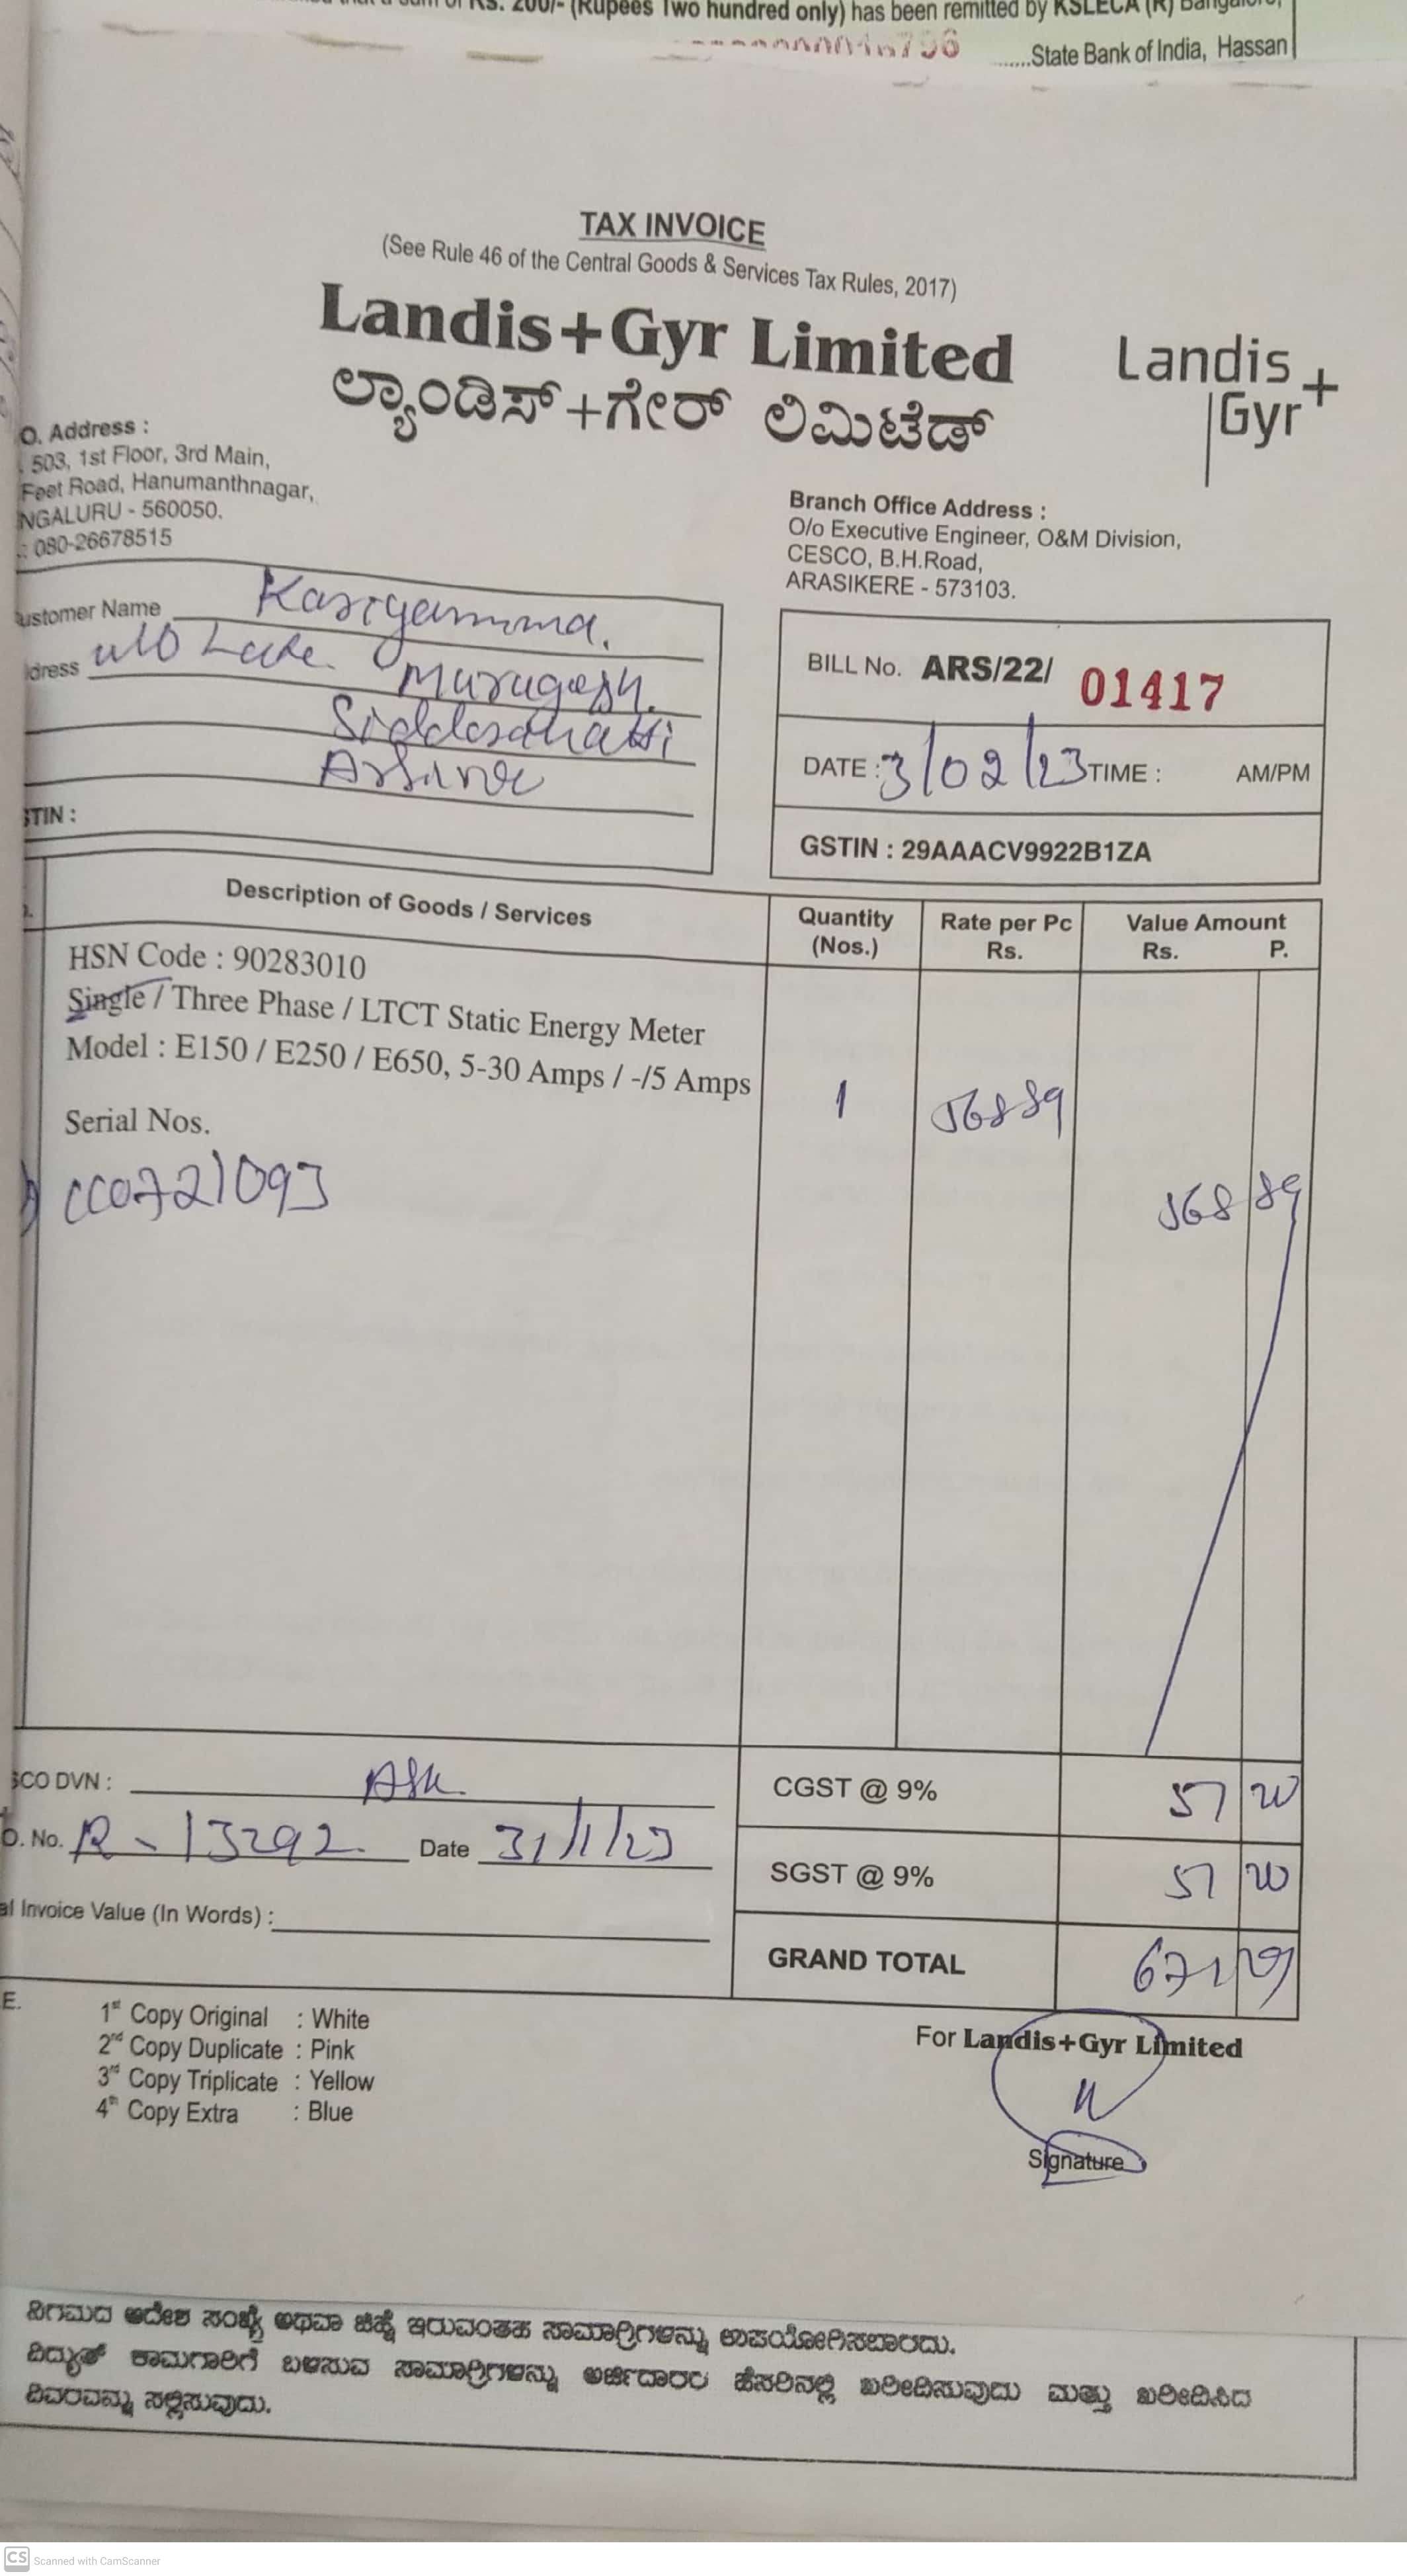 Rs. 200/- (Rupees Two hundred only) has been remitted by KSLECA (R) Bangalore,
.......State Bank of India, Hassan
TAX INVOICE
(See Rule 46 of the Central Goods & Services Tax Rules, 2017)
Landis+Gyr Limited
Landis
+
Gyr
ಲ್ಯಾಂಡಿಸ್+ಗೇರ್ ಲಿಮಿಟೆಡ್
O. Address :
503, 1st Floor, 3rd Main,
Feet Road, Hanumanthnagar,
NGALURU - 560050.
: 080-26678515
Branch Office Address :
O/o Executive Engineer, O&M Division,
CESCO, B.H.Road,
ARASIKERE - 573103.
ustomer Name Kariyamma.
dress w/o Late Murugesh.
Siddarahatti
STIN :
BILL No. ARS/22/ 01417
DATE : 3/02/23 TIME : AM/PM
GSTIN : 29AAACV9922B1ZA
Description of Goods / Services
Quantity (Nos.)
Rate per Pc Rs.
Value Amount Rs. P.
HSN Code : 90283010
Single / Three Phase / LTCT Static Energy Meter
Model : E150 / E250 / E650, 5-30 Amps / -/5 Amps
1 56889
Serial Nos.
CC0721093
568 89
SCO DVN : ASK
O. No. R-13292 Date 31/1/23
al Invoice Value (In Words) :
CGST @ 9% 51 20
SGST @ 9% 51 20
GRAND TOTAL 671 29
E.
1st Copy Original : White
2nd Copy Duplicate : Pink
3rd Copy Triplicate : Yellow
4th Copy Extra : Blue
For Landis+Gyr Limited
Signature
ನಿಗಮದ ಆದೇಶ ಸಂಖ್ಯೆ ಅಥವಾ ಚಿಹ್ನೆ ಇರುವಂತಹ ಸಾಮಾಗ್ರಿಗಳನ್ನು ಉಪಯೋಗಿಸಬಾರದು.
ವಿದ್ಯುತ್ ಕಾಮಗಾರಿಗೆ ಬಳಸುವ ಸಾಮಾಗ್ರಿಗಳನ್ನು ಅರ್ಜಿದಾರರ ಹೆಸರಿನಲ್ಲಿ ಖರೀದಿಸುವುದು ಮತ್ತು ಖರೀದಿಸಿದ
ವಿವರವನ್ನು ಸಲ್ಲಿಸುವುದು.
CS Scanned with CamScanner